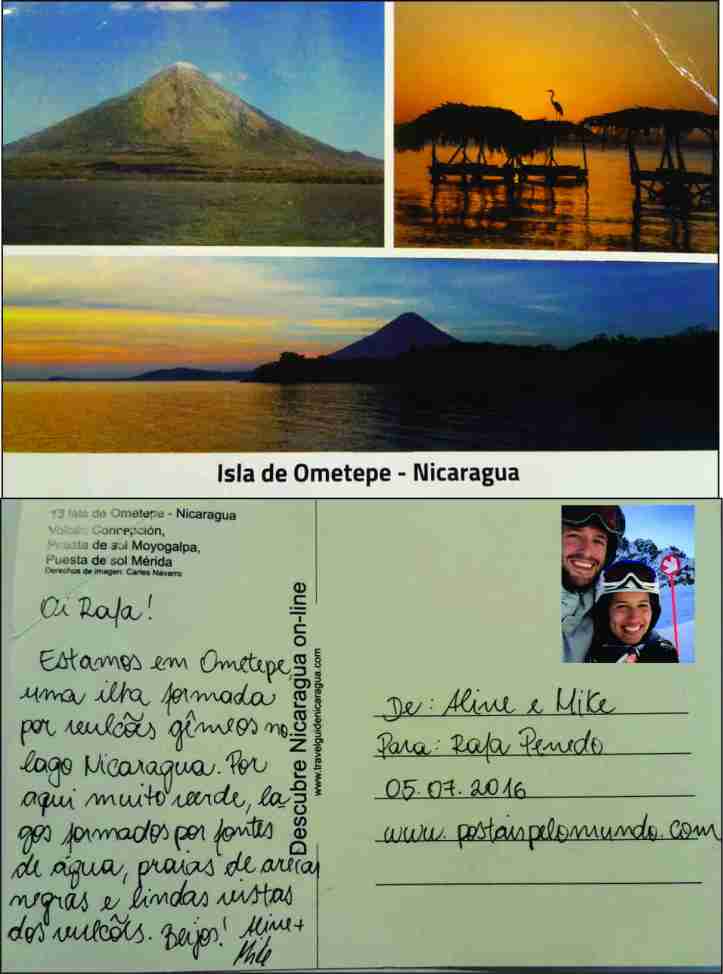 Isla de Ometepe - Nicaragua
13 Isla de Ometepe - Nicaragua
Volcán Concepción,
Puesta de sol Moyogalpa,
Puesta de sol Mérida
Derechos de imagen: Carles Navarro
Oi Rafa!
Estamos em Ometepe,
uma ilha formada
por vulcões gêmeos no
lago Nicaragua. Por
aqui muito verde, la
gos formados por fontes
de água, praias de areias
negras e lindas vistas
dos vulcões. Beijos! Aline +
Mike
Descubre Nicaragua on-line
www.travelguidenicaragua.com
De: Aline e Mike
Para: Rafa Penedo
05.07.2016
www.postaispelomundo.com